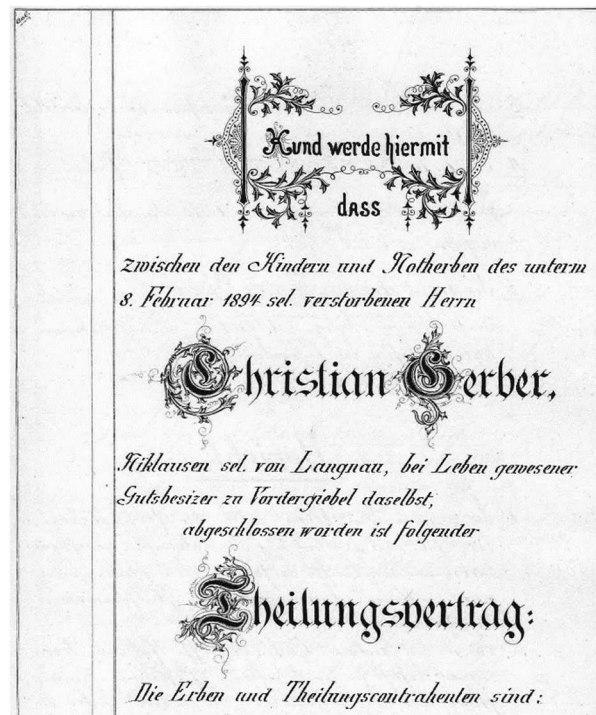 Kund werde hiermit
dass
zwischen den Kindern und Notherben des unterm
8. Februar 1894 sel. verstorbenen Herrn
Christian Gerber,
Niklausen sel. von Langnau, bei Leben gewesener
Gutsbesizer zu Vordergiebel daselbst,
abgeschlossen worden ist folgender
Theilungsvertrag:
Die Erben und Theilungscontrahenten sind: